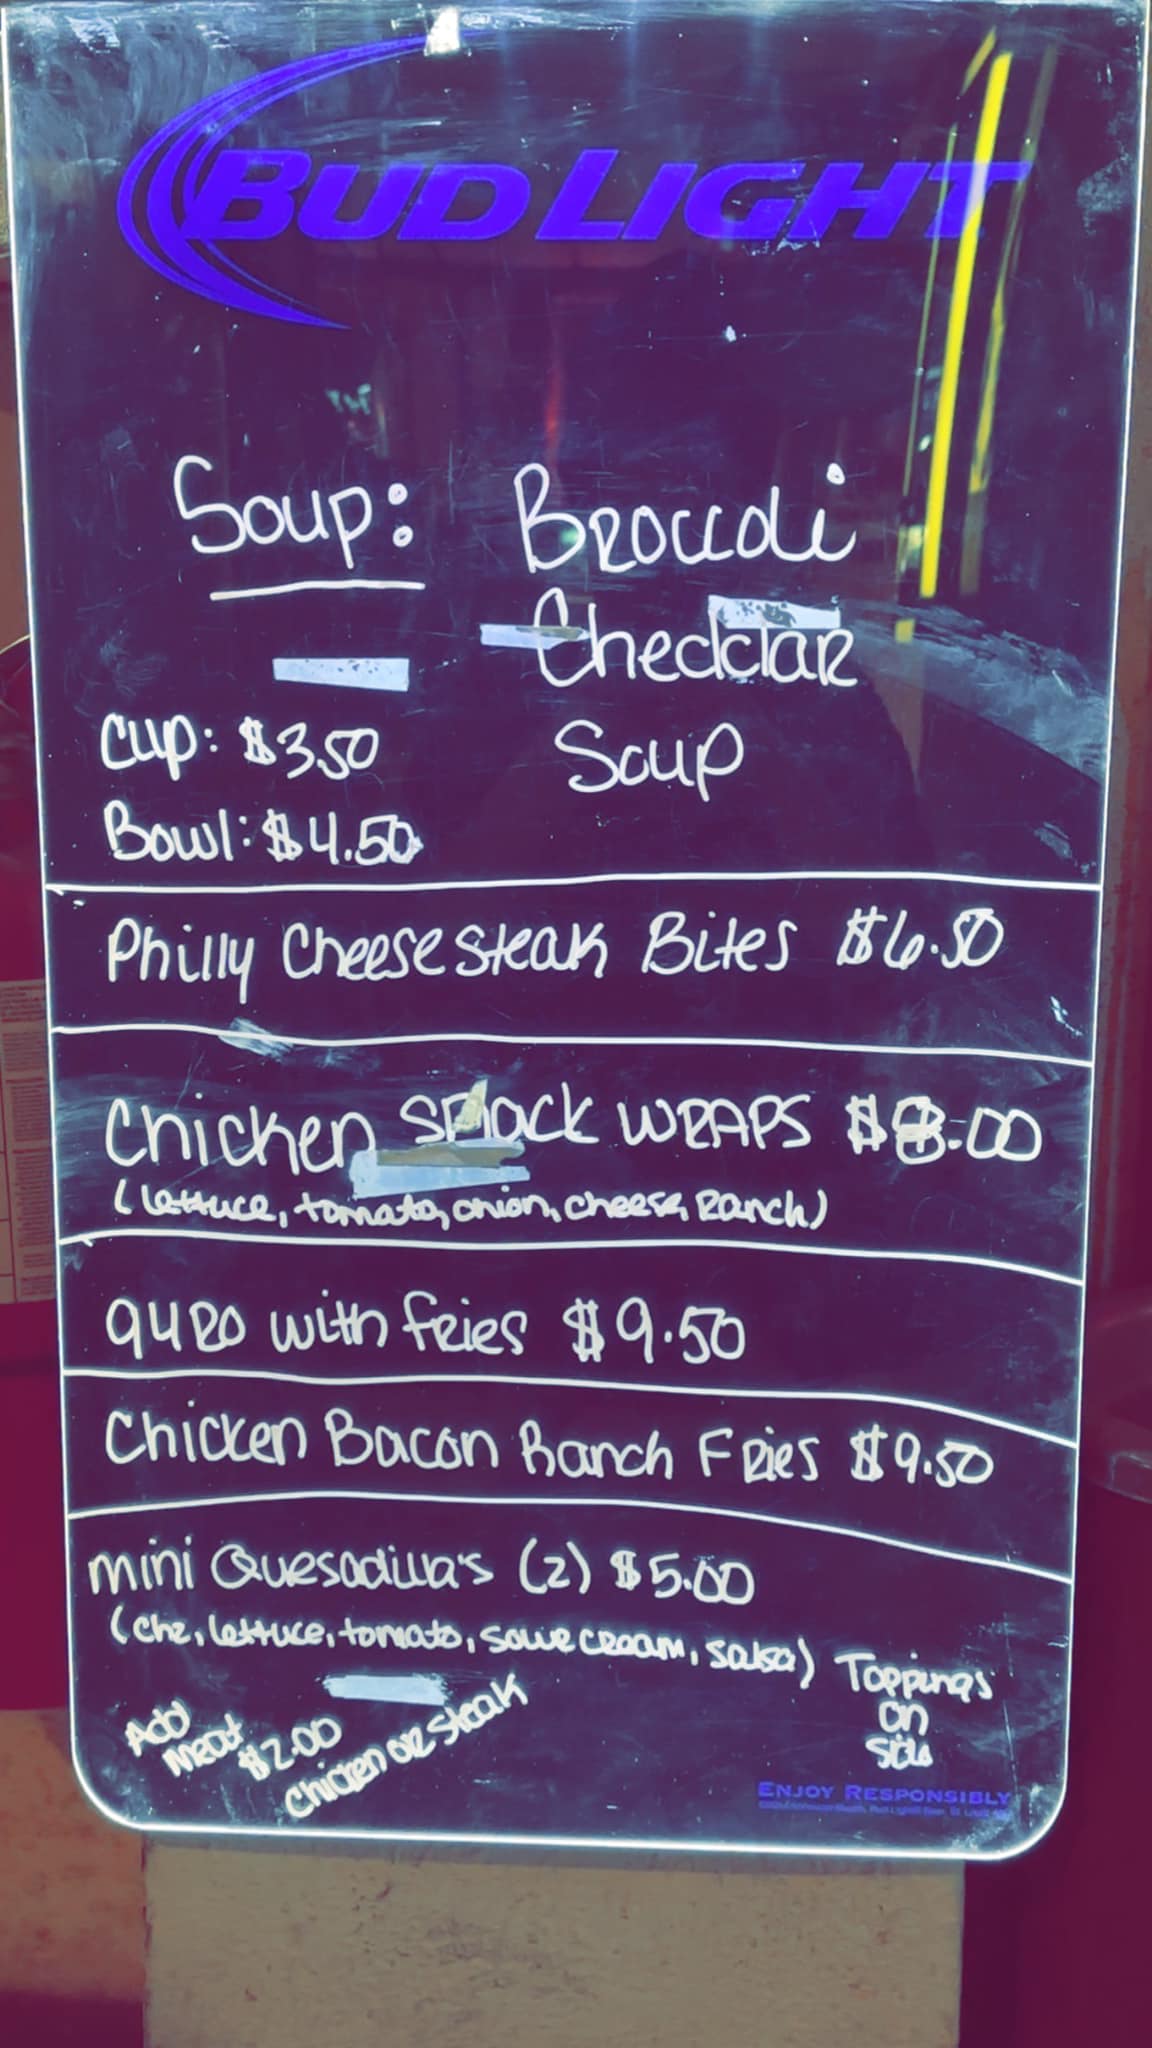 BUD LIGHT
Soup: Broccoli
Cheddar
Soup
Cup: $3.50
Bowl: $4.50
Philly Cheesesteak Bites $6.50
Chicken Snack WRAPS $8.00
(lettuce, tomato, onion, cheese, Ranch)
gyRo with fries $9.50
Chicken Bacon Ranch Fries $9.50
mini Quesadilla's (2) $5.00
(chz, lettuce, tomato, sour cream, salsa)
Toppings
on
side
Add
meat
$2.00
Chicken or steak
ENJOY RESPONSIBLY